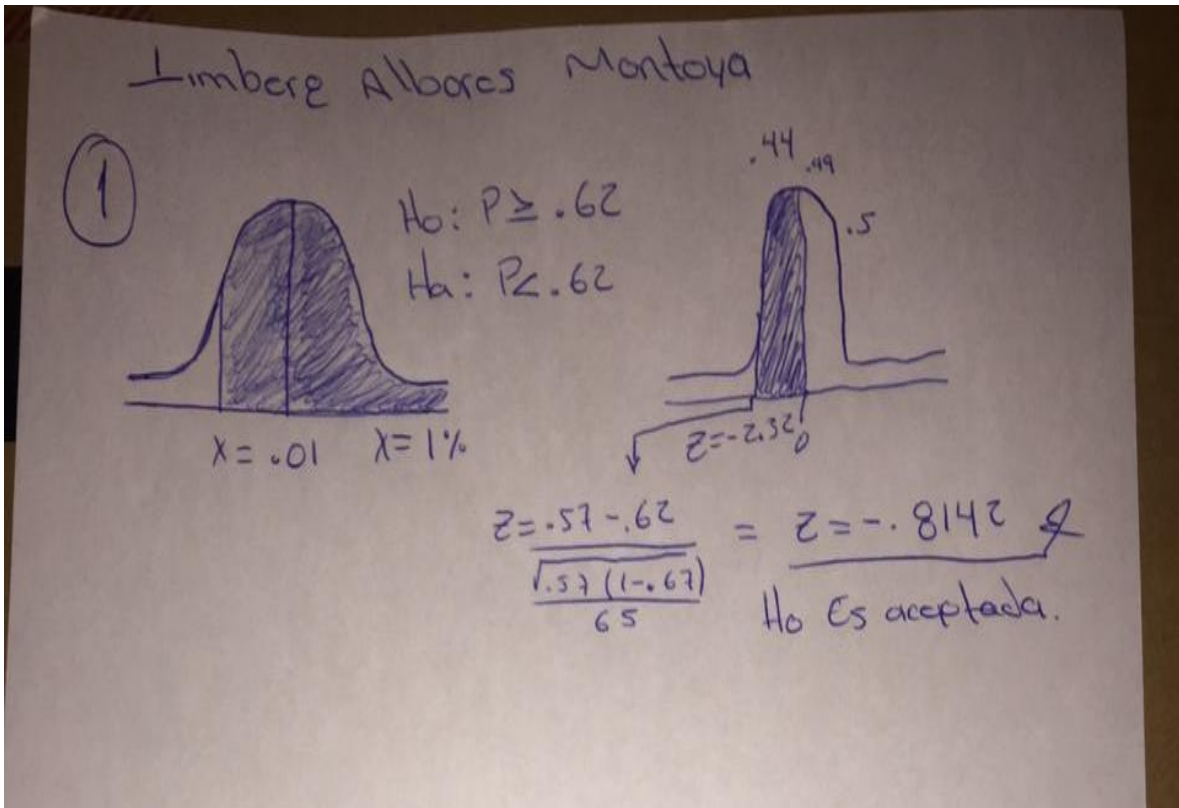 Limberg Albores Montoya
1
Ho: P ≥ .62
Ha: P < .62
.44 .49
.5
X = .01 X = 1%
Z = -2.32 0
Z = .57 - .62
√.57 (1-.67)
65
= Z = -.8142
Ho Es aceptada.